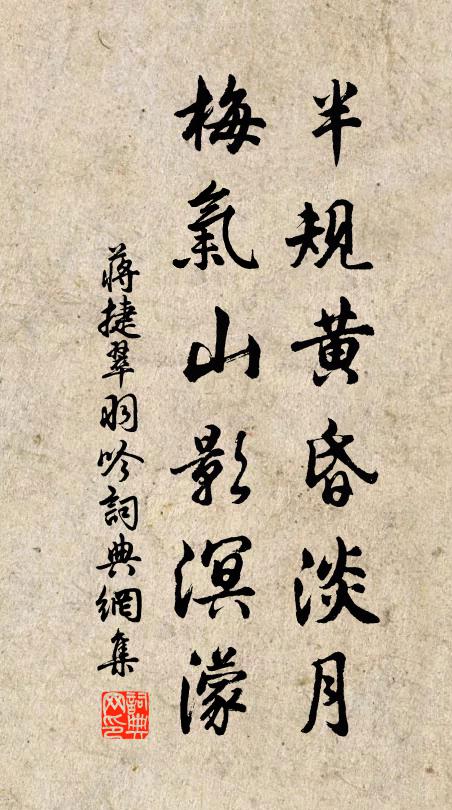 半規黃昏淡月
梅氣山影溟濛
蔣捷翠羽吟詞典網集
詞典網印